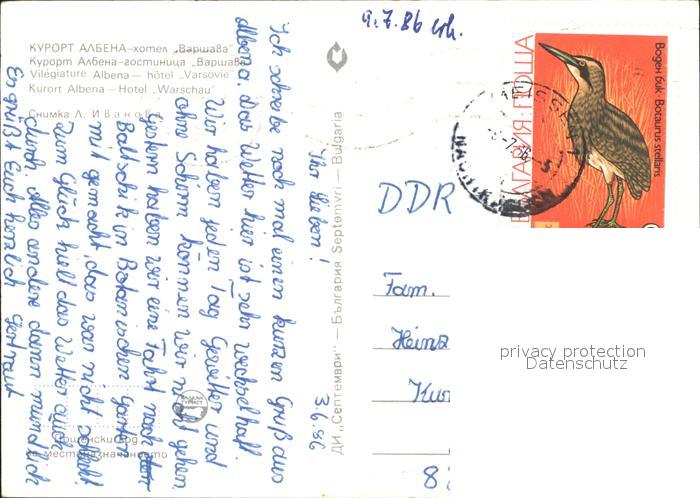 9.7.86 erh.
КУРОРТ АЛБЕНА-хотел „Варшава“
Курорт Албена-гостиница „Варшава“
Vilégiature Albena — hôtel „Varsovie“
Kurort Albena — Hotel „Warschau“
Снимка Л. Иванова
3.6.86
Ihr Lieben!
Ich schreibe noch mal einen kurzen Gruß aus
Albena. Das Wetter hier ist sehr wechselhaft.
Wir haben jeden Tag Gewitter und
ohne Schirm können wir nicht gehen.
Gestern haben wir eine Fahrt nach
Baltschik in Botanischen Garten
mit gemacht, das war nicht schlecht
zum Glück hielt das Wetter auch
durch. Alles andere dann mündlich
Es grüßt Euch herzlich Gertraut
БАЛКАН
ТУРИСТ
Пощенски код
местоназначението
ДИ „Септември“ — България Septemvri — Bulgaria
БЪЛГАРИЯ·ПОЩА
Воден бик · Botaurus stellaris
DDR
Fam.
Heinz
Kur
8
privacy protection
Datenschutz